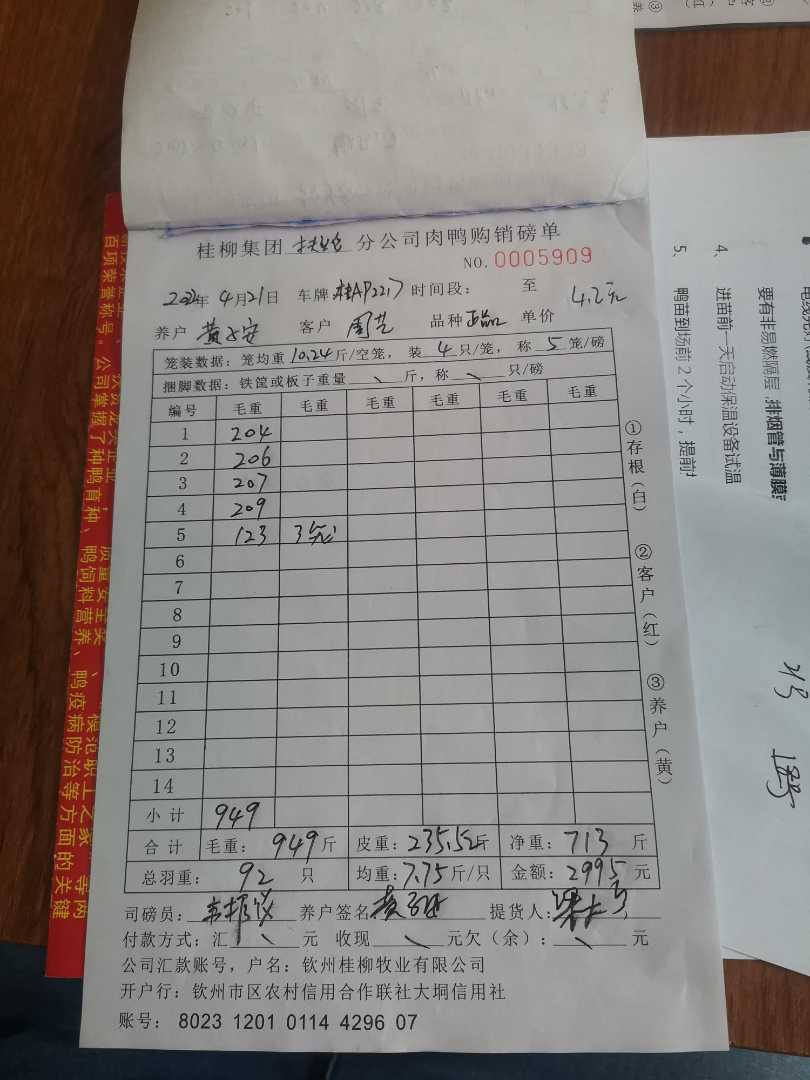 桂柳集团 扶绥 分公司肉鸭购销磅单
NO. 0005909
2022年 4月21日 车牌 桂AP2217 时间段: 至
养户 客户 周艺 品种 正品 单价 4.2元
笼装数据: 笼均重 10.24 斤/空笼, 装 4 只/笼, 称 5 笼/磅
捆脚数据: 铁筐或板子重量 \ 斤, 称 \ 只/磅
编号 毛重 毛重 毛重 毛重 毛重 毛重
1 204
2 206
3 207
4 209
5 123 3笼
6
7
8
9
10
11
12
13
14
小计 949
合计 毛重: 949斤 皮重: 235.52斤 净重: 713 斤
总羽重: 92 只 均重: 7.75斤/只 金额: 2995元
司磅员: 养户签名 提货人:
付款方式: 汇 \ 元 收现 \ 元欠(余): \ 元
公司汇款账号, 户名: 钦州桂柳牧业有限公司
开户行: 钦州市区农村信用合作联社大垌信用社
账号: 8023 1201 0114 4296 07
①存根(白)
②客户(红)
③养户(黄)
要有非易燃隔层,排烟管与薄膜
4、 进苗前一天启动保温设备试温
5、 鸭苗到场前 2 个小时,提前
百项荣誉称号。公司掌握了种鸭育种、鸭饲料营养、鸭疫病防治等方面的关键